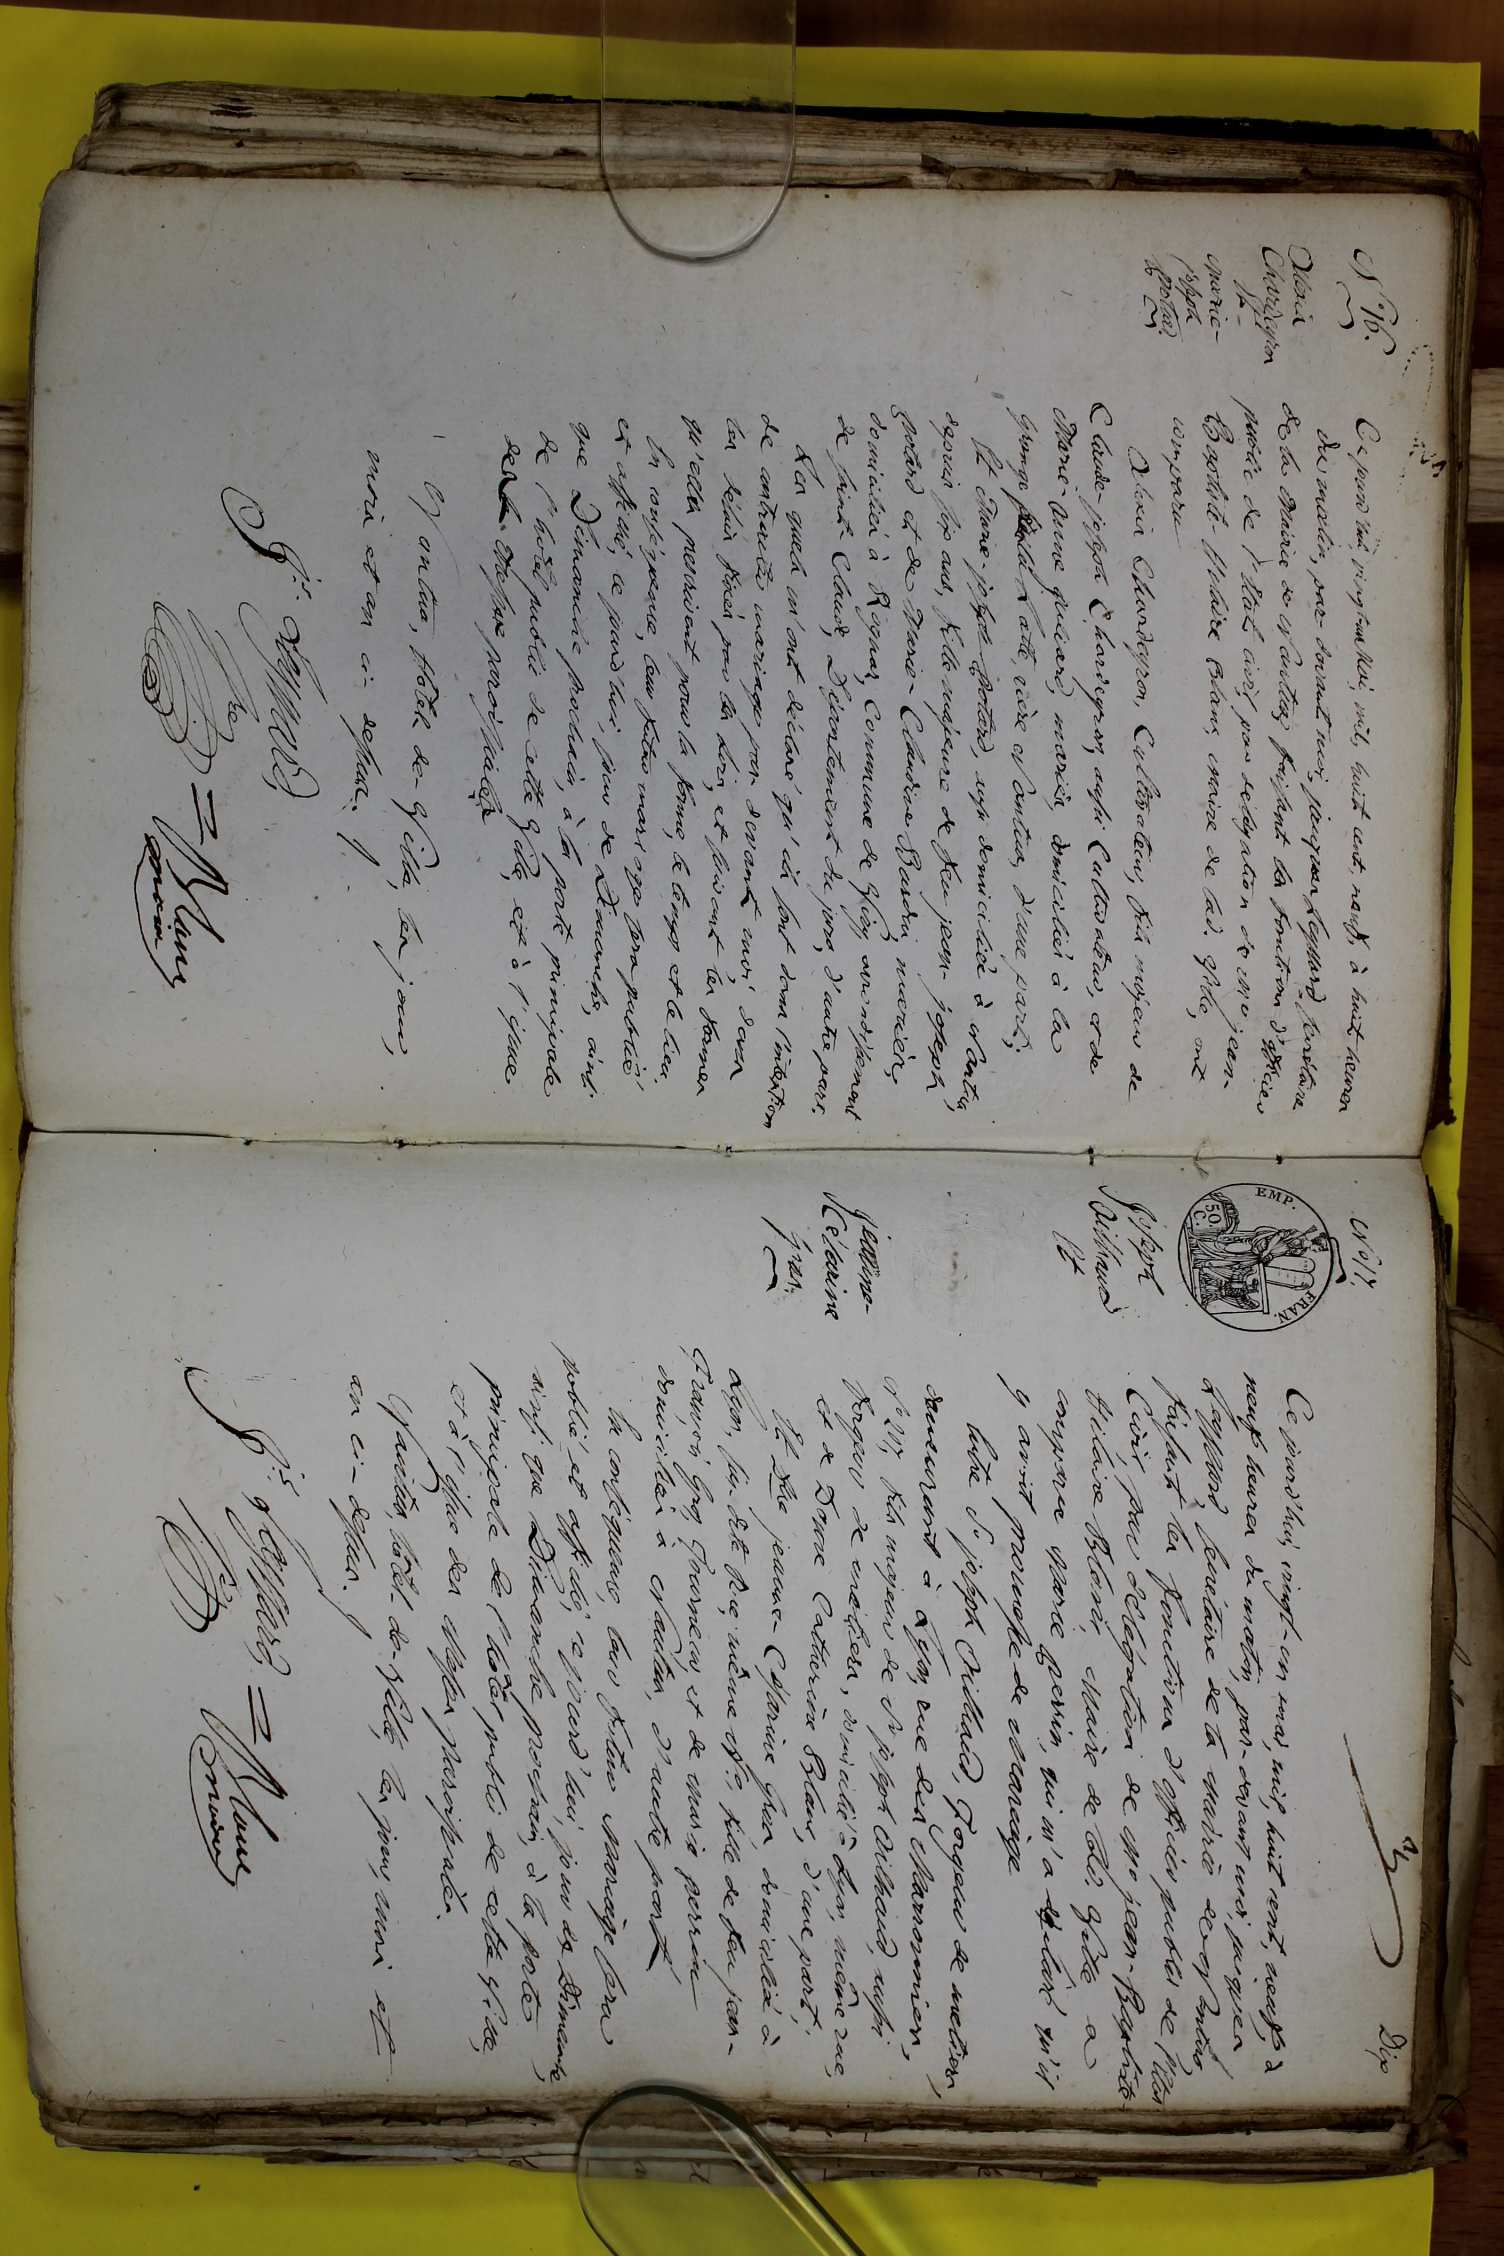 N.° 16.
Alexis
Chardeyron
Et
marie-
joseph
potard.
Ce jourd'hui, vingt mai, mil, huit cent, neuf, à huit heures
du matin, par-devant moi, jacques Leyssard, secrétaire
de la Mairie de Nantua, faisant les fonctions d'officier
public de l'Etat civil, par délégation de mr jean-
Baptiste Hilaire Blanc, maire de lad. Ville, ont
comparu
Alexis Chardeyron, Cultivateur, fils majeur de
Claude-joseph Chardeyron, aussi Cultivateur, et de
Marie-Anne guilland, mariés, domiciliés à la
grange rière Nantua, d'une part;
Et Marie-joseph Potard, domiciliée à Nantua,
depuis six ans, fille majeure de feu jean-joseph
potard et de Marie-Claudine mariés,
domiciliés à Rognas, Commune de arrondissement
de saint-Claude, Département du jura, d'autre part.
Les quels m'ont déclaré qu'ils sont dans l'intention
de contracter mariage par devant moi, dans
les délais fixés par les lois, et suivant les formes
qu'elles prescrivent pour la forme, le temps et le lieu.
En conséquence, leur futur mariage sera publié
et affiché, ce jourd'hui, jour de Dimanche, ainsi
que Dimanche prochain, à la porte principale
de l'hôtel public de cette Ville, et à l'issue
des Messes paroissiales
Nantua, hôtel-de-Ville, les jour,
mois et an ci-dessus.
Jes. Leyssard
sre
= Blanc
maire
N.° 17.
2
Dix
EMP. FRAN.
50. C.
Joseph
Vilhaud
Et
jeanne-
Césarine
gras.
Ce jourd'hui, vingt-un mai, mil, huit cent, neuf, à
neuf heures du matin, par-devant moi, jacques
Leyssard secrétaire de la mairie de Nantua,
faisant les fonctions d'officier public de l'Etat
Civil, par délégation de mr jean-Baptiste-
Hilaire Blanc, Maire de lad. Ville a
comparu marie perrin, qui m'a déclaré qu'il
y avait promesse de mariage
Entre Sr joseph Vilhaud, forgeur de métiers,
demeurant à Lyon, rue des Marronniers,
n.° 207, fils majeur de Sr joseph Vilhaud, aussi
forgeur de métiers, domicilié à Lyon, même rue,
et de Dame Catherine Blanc, d'une part;
Et Dlle jeanne-Césarine gras, domiciliée à
Lyon, susdite Rue, même n.°, fille de feu jean-
François gras, tourneur, et de marie perrin
domiciliée à Nantua, d'autre part
En conséquence, leur futur Mariage sera
publié et affiché, ce jourd'hui, jour de Dimanche,
ainsi que Dimanche prochain, à la porte
principale de l'hôtel public de cette Ville,
et à l'issue des Messes paroissiales.
Nantua, hôtel-de-Ville, les jour, mois et
an ci-dessus.
Jes. Leyssard
sre
= Blanc
maire